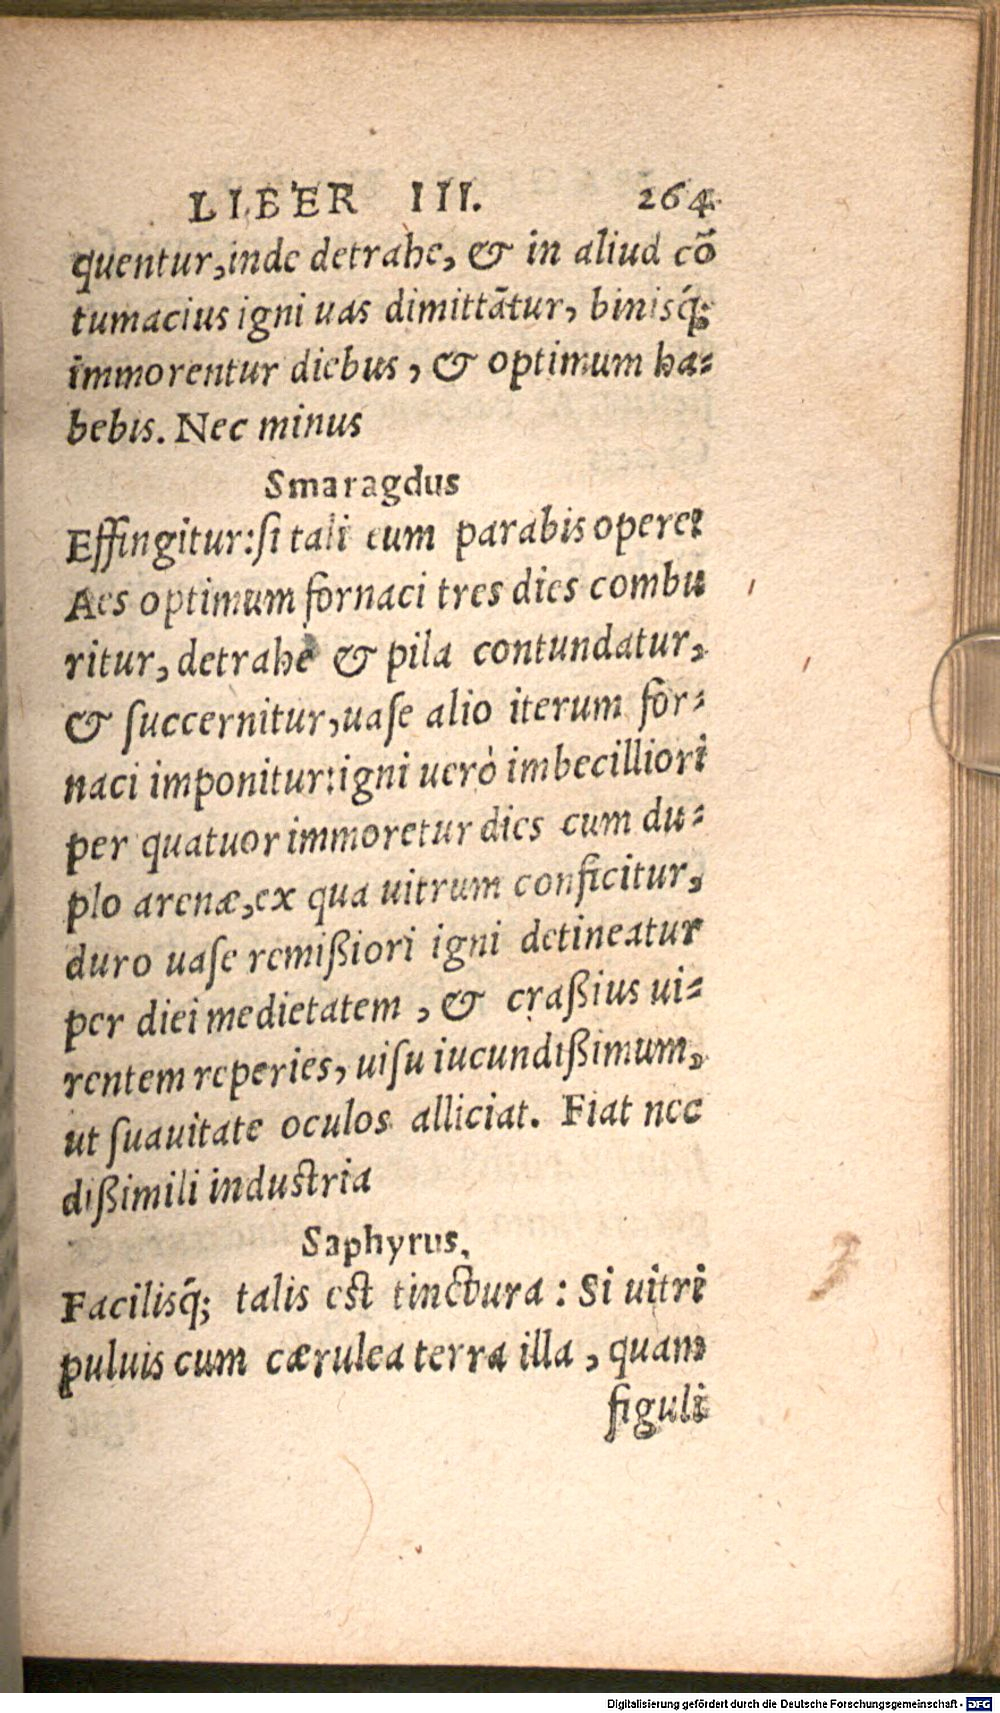 LIBER III. 264
quentur,inde detrahe, & in aliud cõ
tumacius igni uas dimittãtur, binisq́;
immorentur diebus, & optimum ha-
bebis. Nec minus
Smaragdus
Effingitur:ſi tali eum parabis opere:
Aes optimum fornaci tres dies combu
ritur, detrahe & pila contundatur,
& ſuccernitur,uaſe alio iterum for-
naci imponitur:igni uerò imbecilliori
per quatuor immoretur dies cum du-
plo arenæ,ex qua uitrum conficitur,
duro uaſe remißiori igni detineatur
per diei medietatem, & craßius ui-
rentem reperies, uiſu iucundißimum,
ut ſuauitate oculos alliciat. Fiat nec
dißimili industria
Saphyrus.
Facilisq́; talis est tinctura: Si uitri
puluis cum cærulea terra illa, quam
figuli
Digitalisierung gefördert durch die Deutsche Forschungsgemeinschaft - DFG